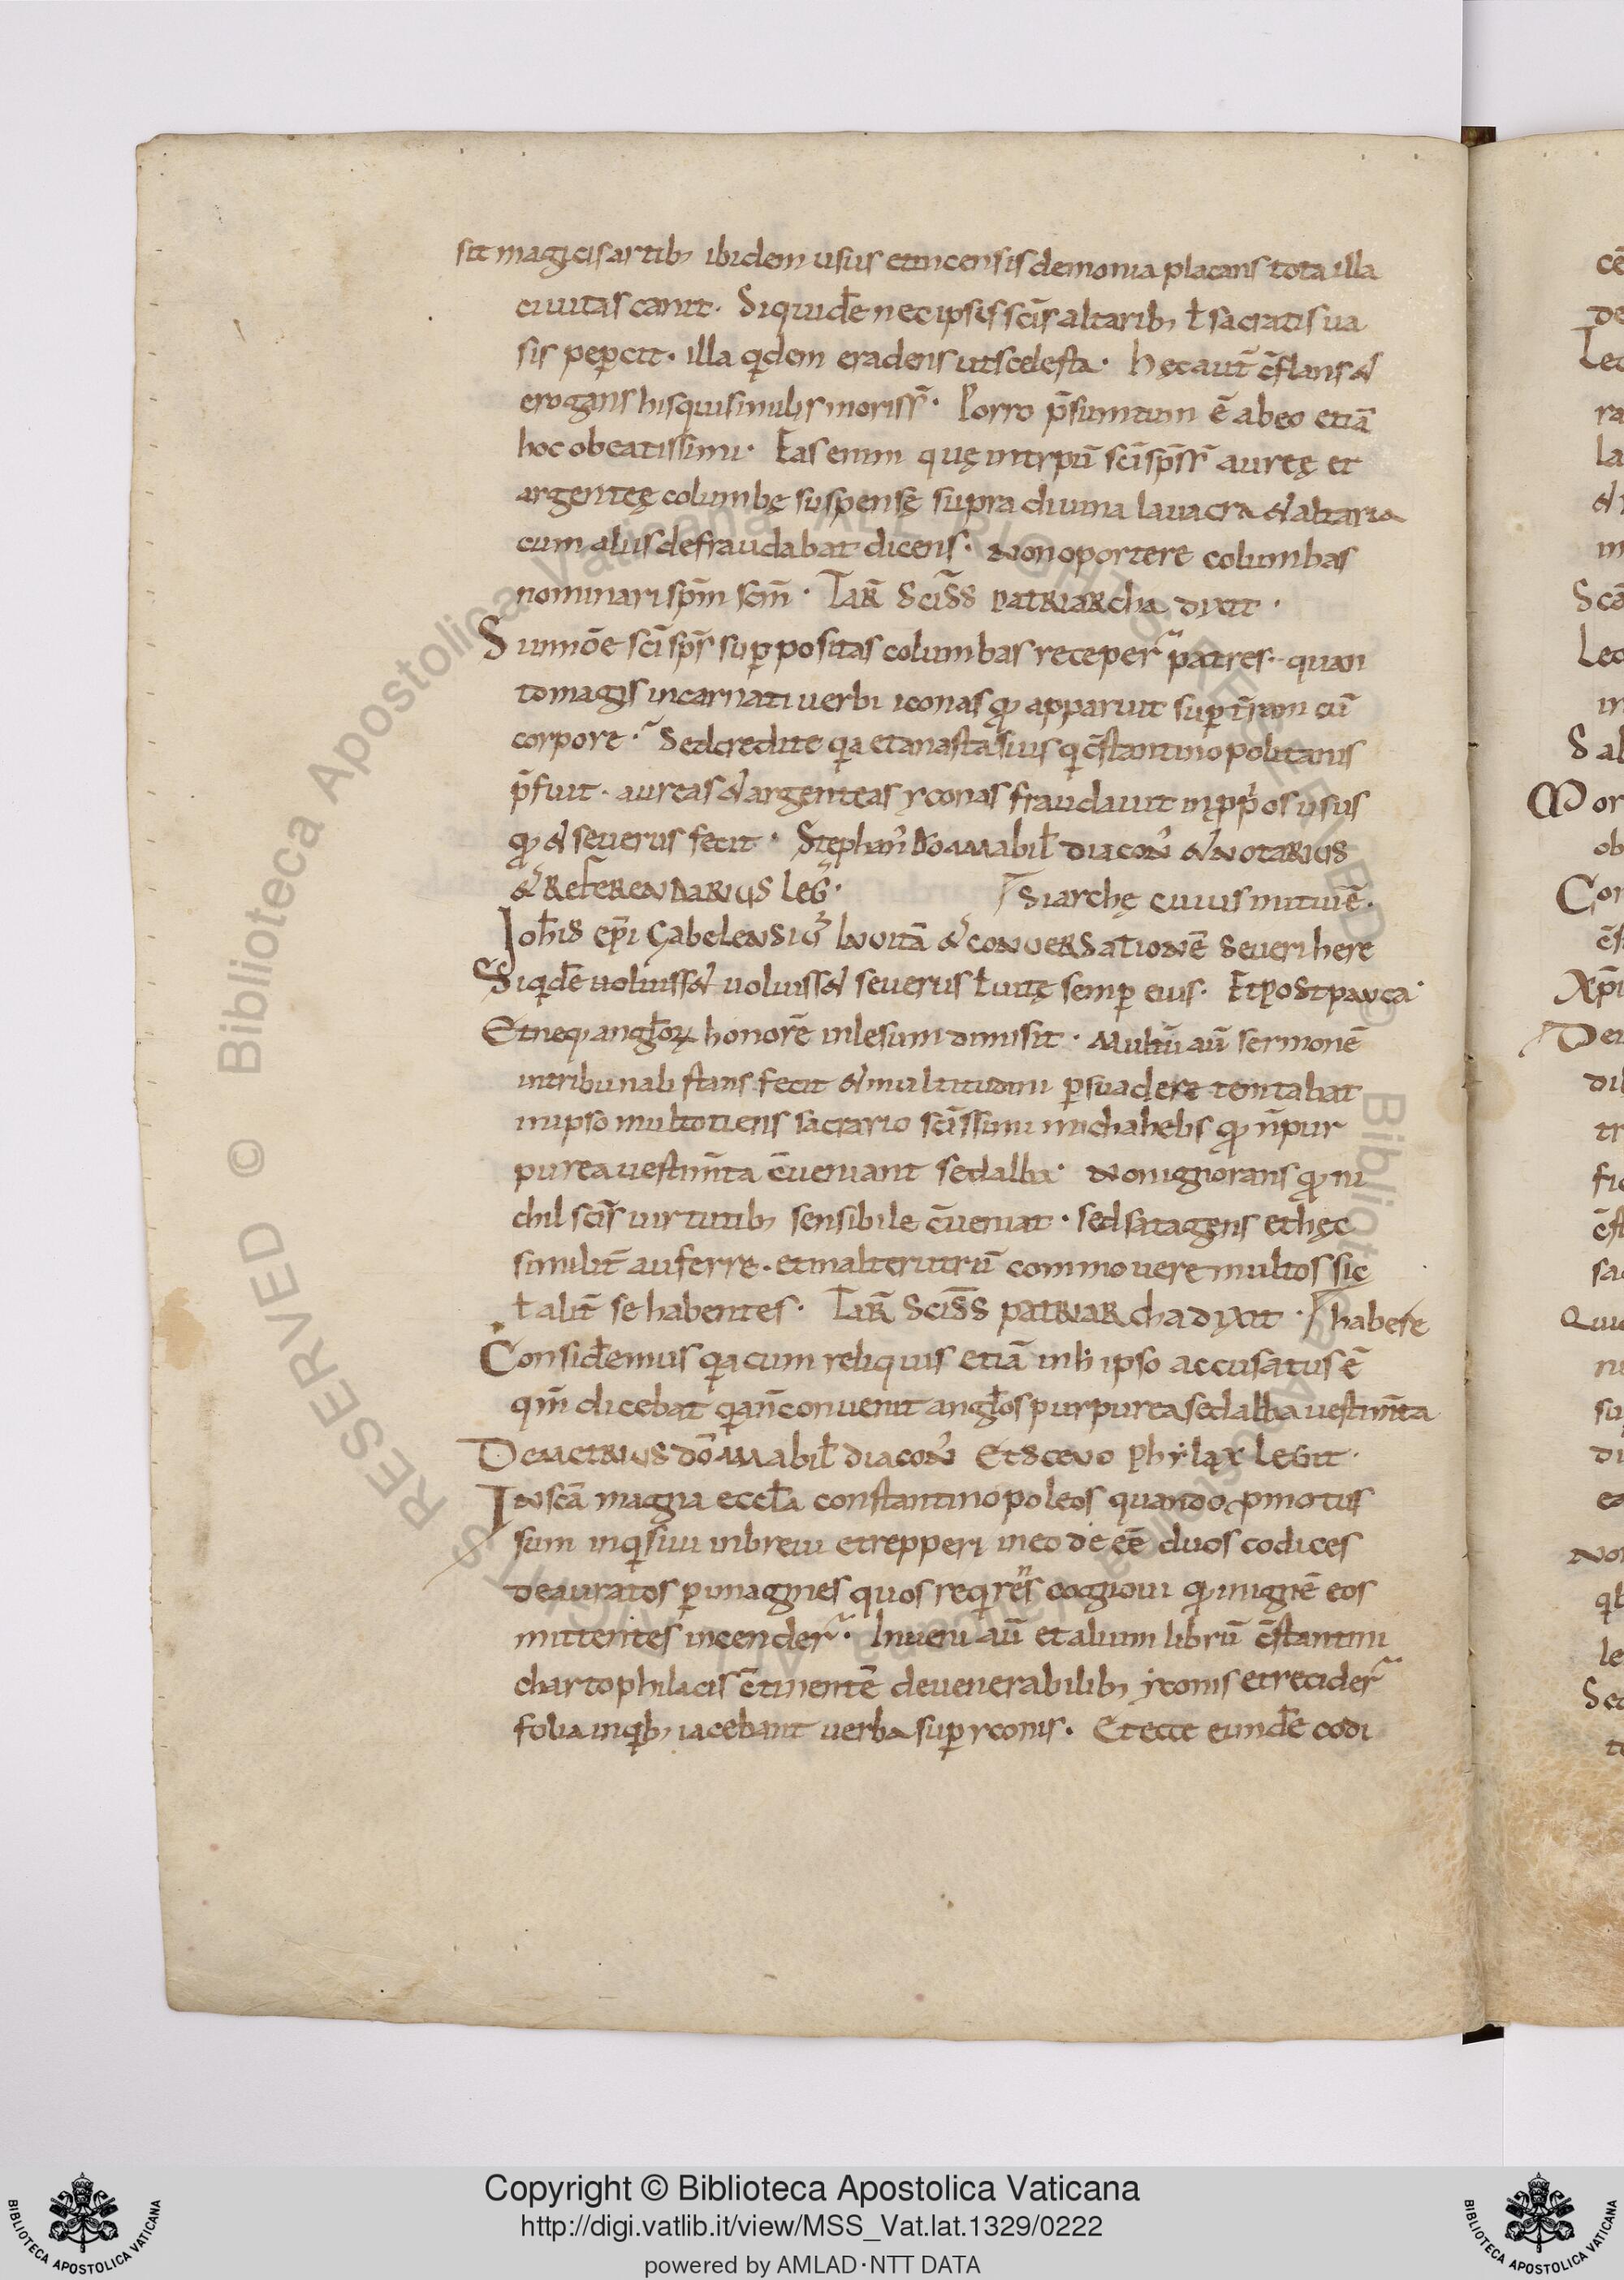 sit magicis artib; ibidem usus et incensis demonia placans tota illa
ciuitas canit. Siquidē nec ipsis scīs altarib; ł sacratis ua
sis pepcit. illa qdem eradens ut scelesta. hęc aut̄ c̄flans &
erogans his qui similis moris sr̄. Porro p̄sumtum ē ab eo etiā
hoc o beatissimi. Eas enim quę in tr̄pū sci sp̄s sr̄ aureę et
argenteę columbę suspensę supra diuina lauacra & altaria
cum aliis defraudabat dicens. Non oportere columbas
nominari sp̄m scm̄. TaR̄ Sciss̄ patRiaRcha dixit.
Si in nōe sci sp̄s suppositas columbas receper̄ patres. quan
to magis incarnati uerbi iconas q; apparuit sup t̄ram cū
corpore. Sed credite qa et anastasius q c̄stantinopolitanis
p̄fuit. aureas & argenteas yconas fraudauit in pp̄os usus
q; & seuerus fecit. Stephan' dō amabil̄ diacon' & notaRius
& RefeRendaRius leḡ. siarchę ciuiis mitiniē.
Joh̄is ep̄i Gabelensiū In uitā & conueRsationē Seueri here
Siqdē uoluiss& uoluiss& seuerus ł uitę semp eius. Et post pauca.
Et neq; angl̄oꝝ honorē inlesum dimisit. Multū aū sermonē
in tribunali stans fecit & multitudini psuadere temtabat
in ipso multotiens sacrario scīssimi michahelis q; n̄ pur
purea uestim̄ta c̄ueniant sed alba. Non ignorans q; ni
chil scīs uirtutib; sensibile c̄ueniat. sed satagens et hęc
similit̄ auferre. et in alterutrū commouere multos sic
ł alit̄ se habentes. TaR̄ Sciss̄ patRiaRcha dixit. habere
Consid̄emus qa cum reliquis etiā in h' ipso accusatus ē
qm̄ dicebat qa n̄ conuenit angl̄os purpurea sed alba uestim̄ta
DemetRius dō amabil̄ diacon' et sceuophylax legit.
In scā magna eccl̄a constantinopoleos quando pmotus
sum inqsiui in breui et repperi in eo deēē duos codices
deauratos p imagines quos reqrens cognoui q; in ignē eos
mittentes incender̄. Inueni aū et alium librū c̄stantini
chartophilacis c̄tinentē de uenerabilib; yconis et recider̄
folia in qb; iacebant uerba sup yconis. Et ecce eundē codi
Copyright © Biblioteca Apostolica Vaticana
http://digi.vatlib.it/view/MSS_Vat.lat.1329/0222
powered by AMLAD·NTT DATA
BIBLIOTECA APOSTOLICA VATICANA
BIBLIOTECA APOSTOLICA VATICANA